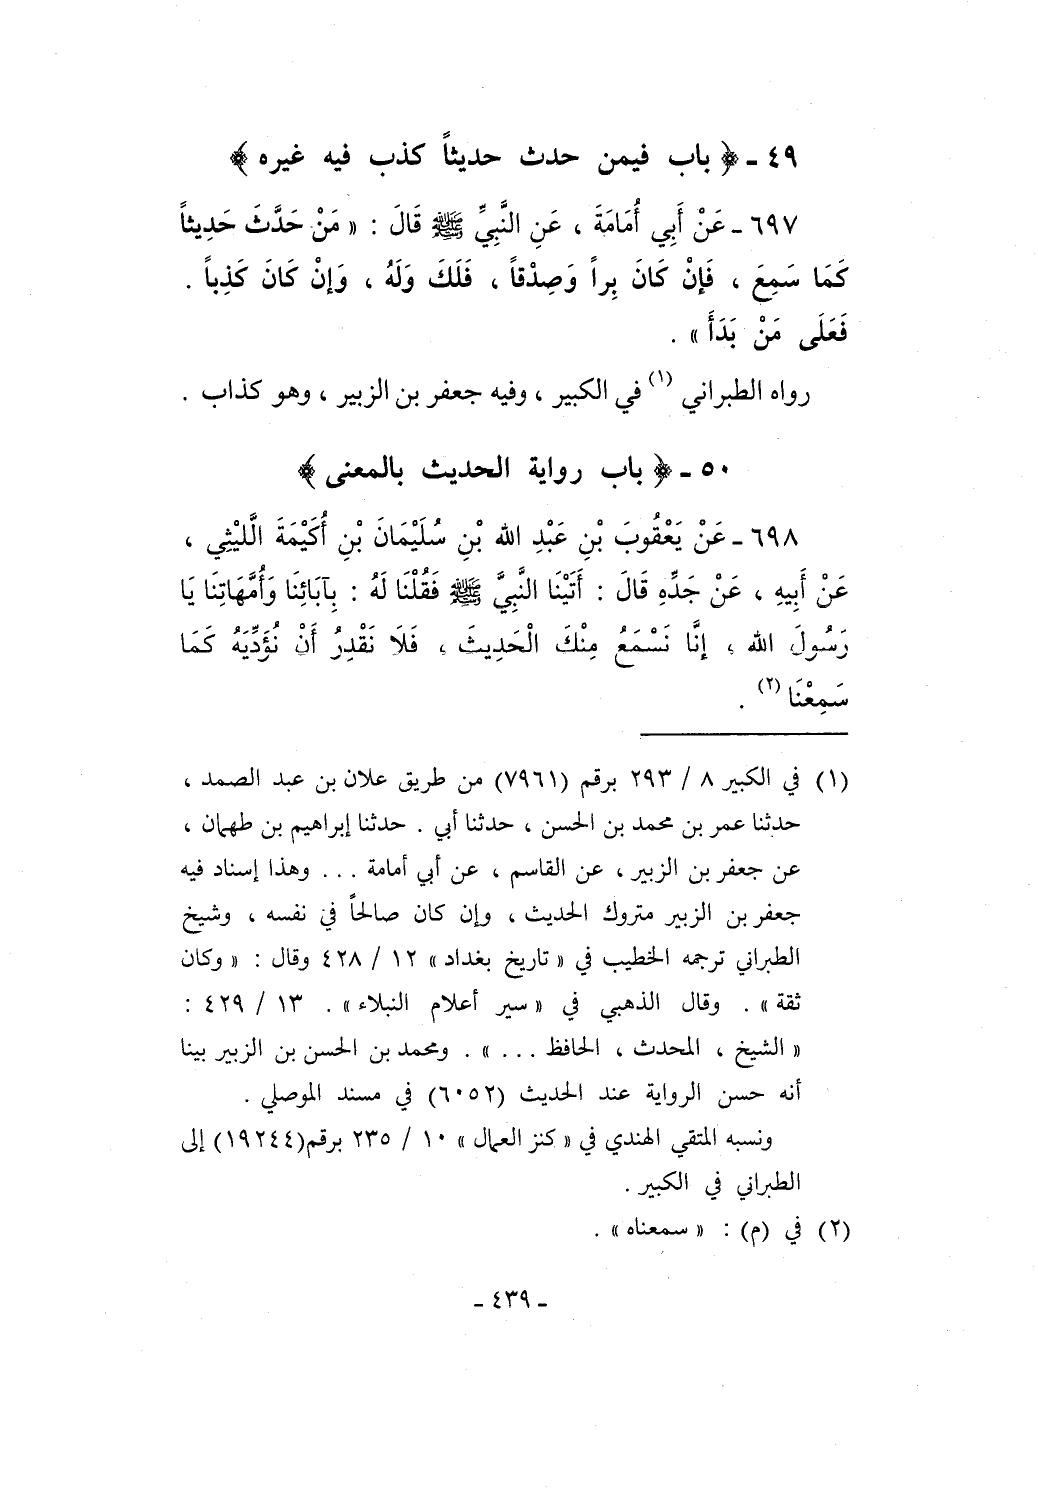 ٤٩ - ﴿ باب فيمن حدث حديثاً كذب فيه غيره ﴾
٦٩٧ - عَنْ أَبِي أُمَامَةَ ، عَنِ النَّبِيِّ ﷺ قَالَ : « مَنْ حَدَّثَ حَدِيثاً
كَمَا سَمِعَ ، فَإِنْ كَانَ بِراً وَصِدْقاً ، فَلَكَ وَلَهُ ، وَإِنْ كَانَ كَذِباً .
فَعَلَى مَنْ بَدَأَ » .
رواه الطبراني (١) في الكبير ، وفيه جعفر بن الزبير ، وهو كذاب .
٥٠ - ﴿ باب رواية الحديث بالمعنى ﴾
٦٩٨ - عَنْ يَعْقُوبَ بْنِ عَبْدِ الله بْنِ سُلَيْمَانَ بْنِ أُكَيْمَةَ الَّليْثِي ،
عَنْ أَبِيهِ ، عَنْ جَدِّهِ قَالَ : أَتَيْنَا النَّبِيَّ ﷺ فَقُلْنَا لَهُ : بِآبَائِنَا وَأُمَّهَاتِنَا يَا
رَسُولَ الله ، إِنَّا نَسْمَعُ مِنْكَ الْحَدِيثَ ، فَلَا نَقْدِرُ أَنْ نُؤَدِّيَهُ كَمَا
سَمِعْنَا (٢) .
(١) في الكبير ٨ / ٢٩٣ برقم (٧٩٦١) من طريق علان بن عبد الصمد ،
حدثنا عمر بن محمد بن الحسن ، حدثنا أبي . حدثنا إبراهيم بن طهمان ،
عن جعفر بن الزبير ، عن القاسم ، عن أبي أمامة ... وهذا إسناد فيه
جعفر بن الزبير متروك الحديث ، وإن كان صالحاً في نفسه ، وشيخ
الطبراني ترجمه الخطيب في « تاريخ بغداد » ١٢ / ٤٢٨ وقال : « وكان
ثقة » . وقال الذهبي في « سير أعلام النبلاء » . ١٣ / ٤٢٩ :
« الشيخ ، المحدث ، الحافظ ... » . ومحمد بن الحسن بن الزبير بينا
أنه حسن الرواية عند الحديث (٦٠٥٢) في مسند الموصلي .
ونسبه المتقي الهندي في « كنز العمال » ١٠ / ٢٣٥ برقم(١٩٢٤٤) إلى
الطبراني في الكبير .
(٢) في (م) : « سمعناه » .
- ٤٣٩ -